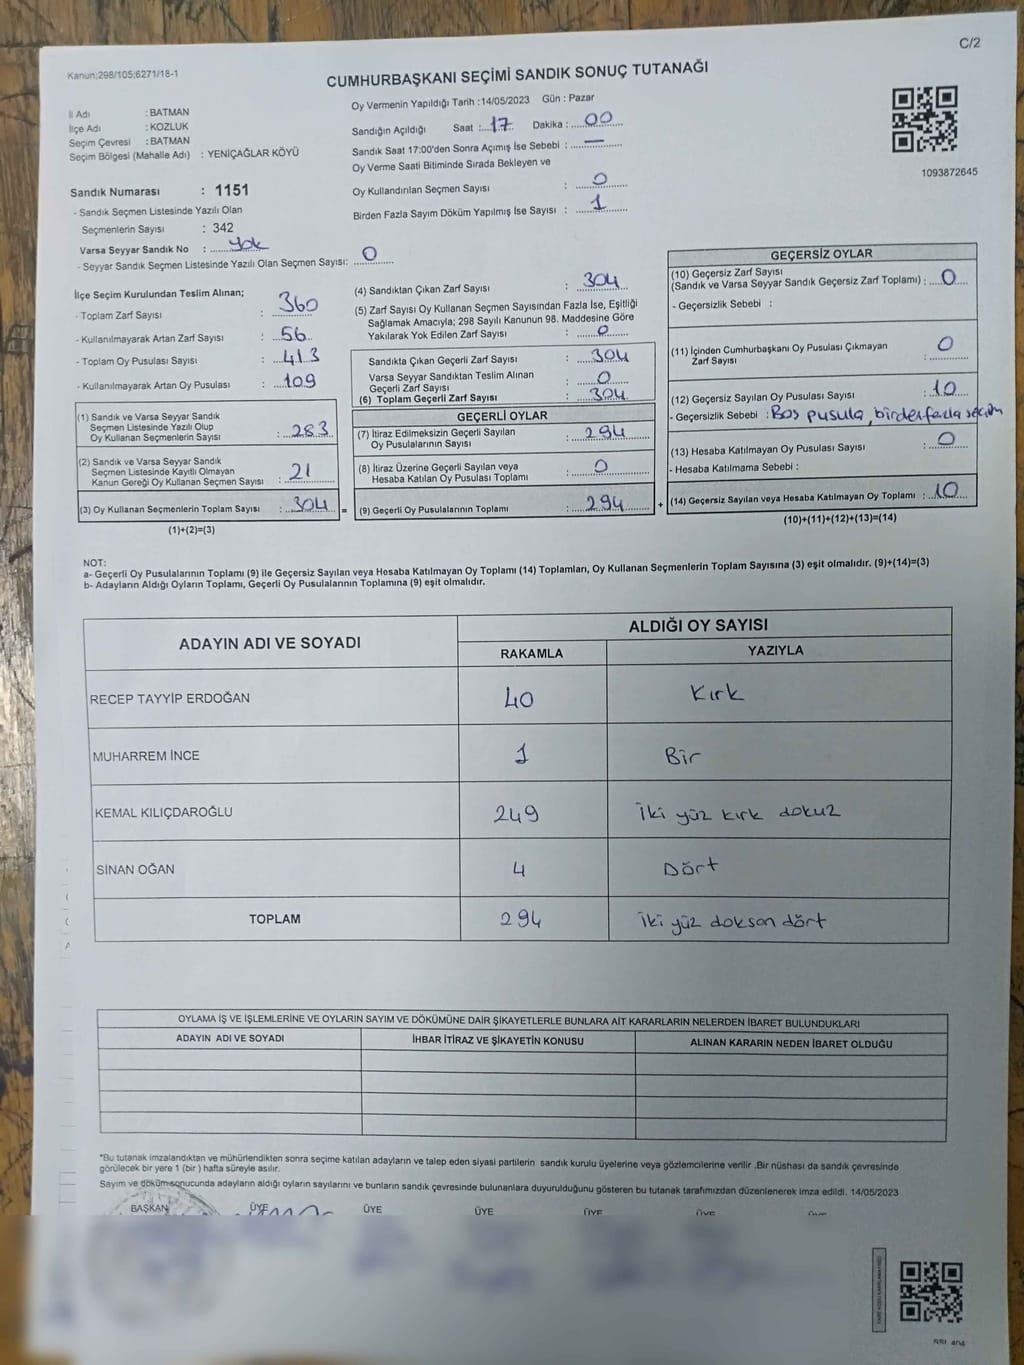 C/2
Kanun:298/105;6271/18-1
CUMHURBAŞKANI SEÇİMİ SANDIK SONUÇ TUTANAĞI
İl Adı : BATMAN
İlçe Adı : KOZLUK
Seçim Çevresi : BATMAN
Seçim Bölgesi (Mahalle Adı) : YENİÇAĞLAR KÖYÜ
Sandık Numarası : 1151
- Sandık Seçmen Listesinde Yazılı Olan
Seçmenlerin Sayısı : 342
Varsa Seyyar Sandık No : Yok
- Seyyar Sandık Seçmen Listesinde Yazılı Olan Seçmen Sayısı: 0
Oy Vermenin Yapıldığı Tarih :14/05/2023 Gün : Pazar
Sandığın Açıldığı Saat : 17 Dakika : 00
Sandık Saat 17:00'den Sonra Açımış İse Sebebi : —
Oy Verme Saati Bitiminde Sırada Bekleyen ve
Oy Kullandırılan Seçmen Sayısı : 0
Birden Fazla Sayım Döküm Yapılmış İse Sayısı : 1
1093872645
İlçe Seçim Kurulundan Teslim Alınan;
- Toplam Zarf Sayısı : 360
- Kullanılmayarak Artan Zarf Sayısı : 56
- Toplam Oy Pusulası Sayısı : 413
- Kullanılmayarak Artan Oy Pusulası : 109
(1) Sandık ve Varsa Seyyar Sandık
Seçmen Listesinde Yazılı Olup
Oy Kullanan Seçmenlerin Sayısı : 283
(2) Sandık ve Varsa Seyyar Sandık
Seçmen Listesinde Kayıtlı Olmayan
Kanun Gereği Oy Kullanan Seçmen Sayısı : 21
(3) Oy Kullanan Seçmenlerin Toplam Sayısı : 304 =
(1)+(2)=(3)
(4) Sandıktan Çıkan Zarf Sayısı : 304
(5) Zarf Sayısı Oy Kullanan Seçmen Sayısından Fazla İse, Eşitliği
Sağlamak Amacıyla; 298 Sayılı Kanunun 98. Maddesine Göre
Yakılarak Yok Edilen Zarf Sayısı : 0
Sandıkta Çıkan Geçerli Zarf Sayısı : 304
Varsa Seyyar Sandıktan Teslim Alınan
Geçerli Zarf Sayısı : 0
(6) Toplam Geçerli Zarf Sayısı : 304
GEÇERLİ OYLAR
(7) İtiraz Edilmeksizin Geçerli Sayılan
Oy Pusulalarının Sayısı : 294
(8) İtiraz Üzerine Geçerli Sayılan veya
Hesaba Katılan Oy Pusulası Toplamı : 0
(9) Geçerli Oy Pusulalarının Toplamı : 294 +
GEÇERSİZ OYLAR
(10) Geçersiz Zarf Sayısı
(Sandık ve Varsa Seyyar Sandık Geçersiz Zarf Toplamı) : 0
- Geçersizlik Sebebi :
(11) İçinden Cumhurbaşkanı Oy Pusulası Çıkmayan
Zarf Sayısı : 0
(12) Geçersiz Sayılan Oy Pusulası Sayısı : 10
- Geçersizlik Sebebi : Boş pusula, birden fazla seçim
(13) Hesaba Katılmayan Oy Pusulası Sayısı : 0
- Hesaba Katılmama Sebebi :
(14) Geçersiz Sayılan veya Hesaba Katılmayan Oy Toplamı : 10
(10)+(11)+(12)+(13)=(14)
NOT:
a- Geçerli Oy Pusulalarının Toplamı (9) ile Geçersiz Sayılan veya Hesaba Katılmayan Oy Toplamı (14) Toplamları, Oy Kullanan Seçmenlerin Toplam Sayısına (3) eşit olmalıdır. (9)+(14)=(3)
b- Adayların Aldığı Oyların Toplamı, Geçerli Oy Pusulalarının Toplamına (9) eşit olmalıdır.
ADAYIN ADI VE SOYADI ALDIĞI OY SAYISI
RAKAMLA YAZIYLA
RECEP TAYYİP ERDOĞAN 40 Kırk
MUHARREM İNCE 1 Bir
KEMAL KILIÇDAROĞLU 249 İki yüz kırk dokuz
SİNAN OĞAN 4 Dört
TOPLAM 294 İki yüz doksan dört
OYLAMA İŞ VE İŞLEMLERİNE VE OYLARIN SAYIM VE DÖKÜMÜNE DAİR ŞİKAYETLERLE BUNLARA AİT KARARLARIN NELERDEN İBARET BULUNDUKLARI
ADAYIN ADI VE SOYADI İHBAR İTİRAZ VE ŞİKAYETİN KONUSU ALINAN KARARIN NEDEN İBARET OLDUĞU
*Bu tutanak imzalandıktan ve mühürlendikten sonra seçime katılan adayların ve talep eden siyasi partilerin sandık kurulu üyelerine veya gözlemcilerine verilir .Bir nüshası da sandık çevresinde
görülecek bir yere 1 (bir ) hafta süreyle asılır.
Sayım ve döküm sonucunda adayların aldığı oyların sayılarını ve bunların sandık çevresinde bulunanlara duyurulduğunu gösteren bu tutanak tarafımızdan düzenlenerek imza edildi. 14/05/2023
BAŞKAN ÜYE ÜYE ÜYE ÜYE ÜYE